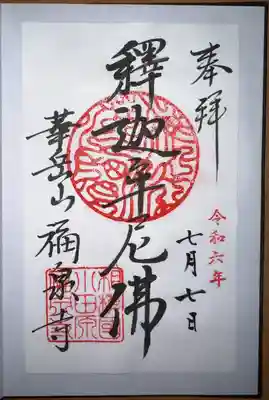 奉拝
令和六年
七月七日
釋迦牟尼佛
華岳山福泉寺